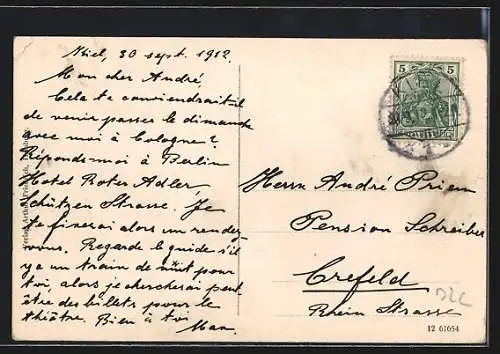 Kiel, 30 sept. 1912.
Mon cher André,
Cela te conviendrait-il
de venir passer le dimanche
avec moi à Cologne?
Réponds-moi à Berlin
Hotel Roter Adler,
Schützen Strasse. Je
te fixerai alors un rendez
vous. Regarde le guide s'il
y a un train de nuit pour
toi, alors je chercherai peut
être des billets pour le
théâtre. Bien à toi
Max.
5 5
Herrn André Prien
Pension Schreiber
Crefeld
Rhein Strasse
12 61654